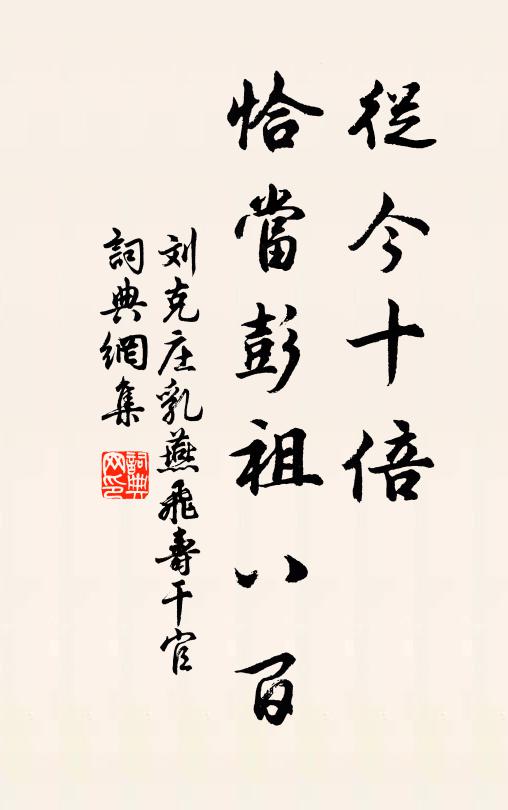 從今十倍
恰當彭祖八百
刘克庄乳燕飛壽干官
詞典網集
詞典
网印